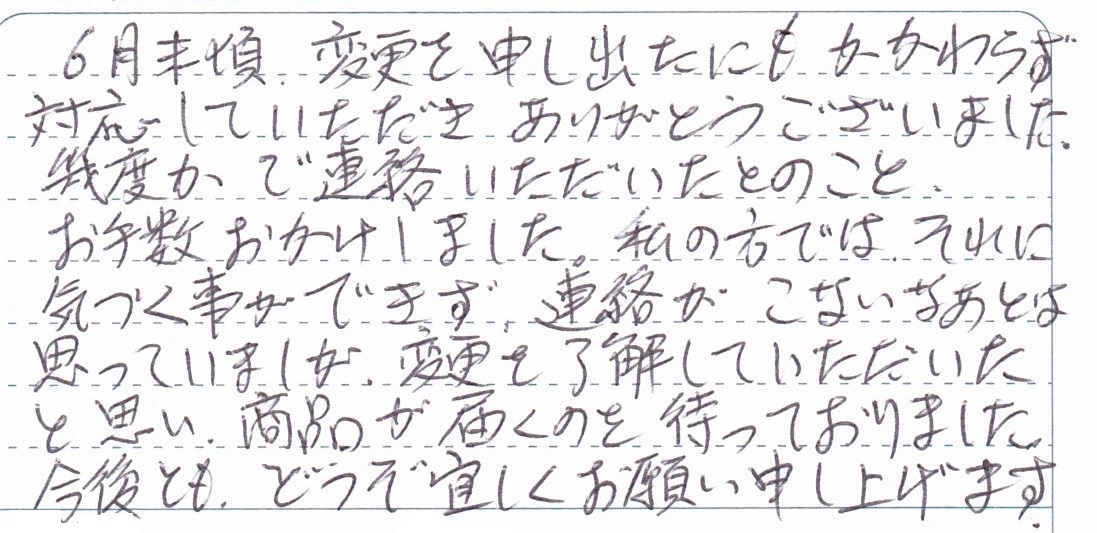 6月末頃、変更を申し出たにもかかわらず
対応していただきありがとうございました。
幾度かで連絡いただいたとのこと、
お手数おかけしました。私の方では、それに
気づく事ができず、連絡がこないなあとは
思っていましが、変更を了解していただいた
と思い、商品が届くのを待っておりました。
今後とも、どうぞ宜しくお願い申し上げます.